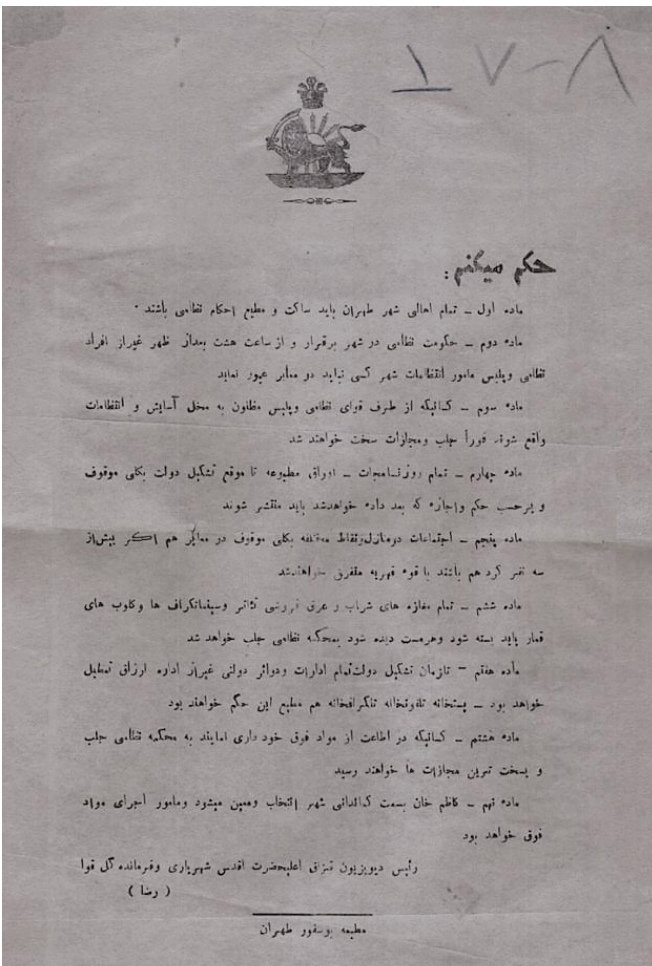 ۱۷-۸
حکم میکنم :
ماده اول – تمام اهالی شهر طهران باید ساکت و مطیع احکام نظامی باشند ۰
ماده دوم – حکومت نظامی در شهر برقرار و از ساعت هشت بعداز ظهر غیراز افراد
نظامی وپلیس مامور انتظامات شهر کسی نباید در معابر عبور نماید
ماده سوم – کسانیکه از طرف قوای نظامی وپلیس مظنون به مخل آسایش و انتظامات
واقع شوند فوراً جلب ومجازات سخت خواهند شد
ماده چهارم – تمام روزنامجات – اوراق مطبوعه تا موقع تشکیل دولت بکلی موقوف
و برحسب حکم واجازه که بعد داده خواهدشد باید منتشر شوند
ماده پنجم – اجتماعات درمنازل ونقاط مختلفه بکلی موقوف در معابر هم اگر بیش از
سه نفر گرد هم باشند با قوه قهریه متفرق خواهندشد
ماده ششم – تمام مغازه های شراب و عرق فروشی تئاتر وسینماتگراف ها وکلوب های
قمار باید بسته شود وهرمست دیده شود بمحکمه نظامی جلب خواهد شد
ماده هفتم – تازمان تشکیل دولت تمام ادارات ودوائر دولتی غیراز اداره ارزاق تعطیل
خواهد بود – پستخانه تلفونخانه تلگرافخانه هم مطیع این حکم خواهند بود
ماده هشتم – کسانیکه در اطاعت از مواد فوق خود داری نمایند به محکمه نظامی جلب
و بسخت ترین مجازات ها خواهند رسید
ماده نهم – کاظم خان بسمت کماندانی شهر انتخاب ومعین میشود ومامور اجرای مواد
فوق خواهد بود
رئیس دیویزیون قزاق اعلیحضرت اقدس شهریاری وفرمانده کل قوا
( رضا )
مطبعه بوسفور طهران